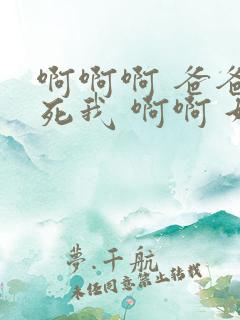 啊啊啊 爸爸
死我 啊啊
夢.千航
未经同意禁止转载